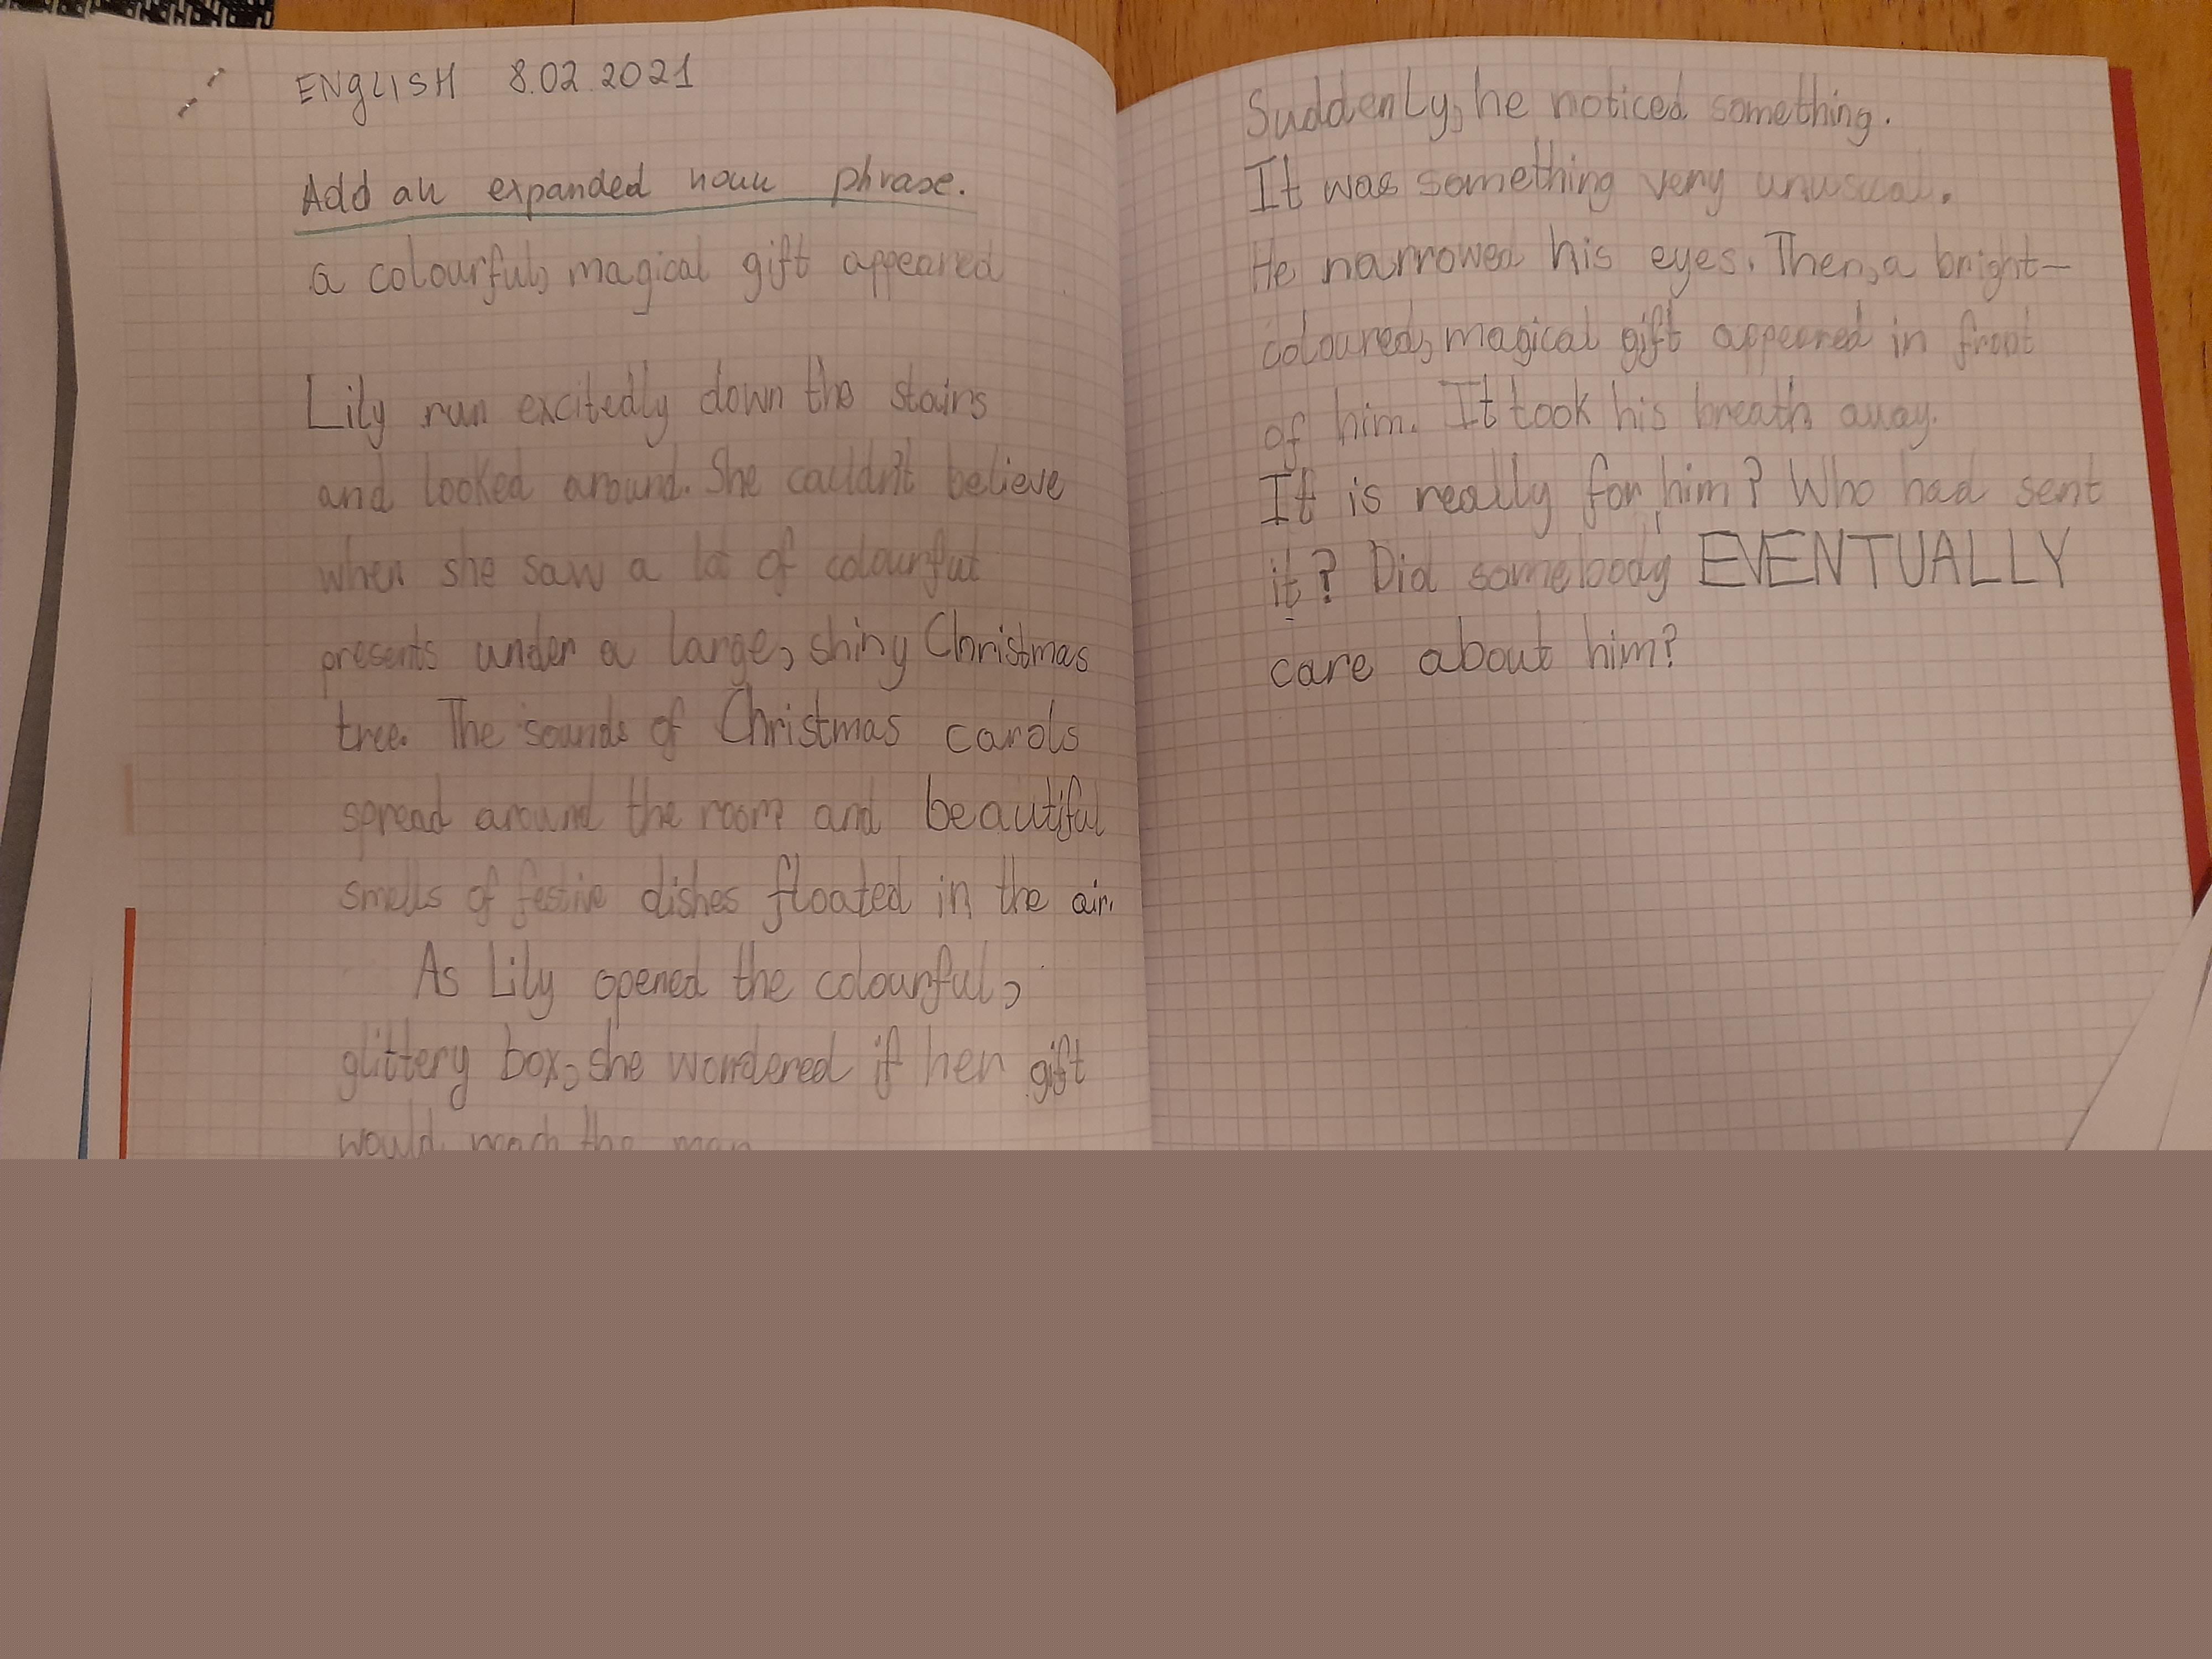 ENGLISH 8.02.2021
Add an expanded noun phrase.
a colourful, magical gift appeared
Lily run excitedly down the stairs
and looked around. She couldn't believe
when she saw a lot of colourful
presents under a large, shiny Christmas
tree. The sounds of Christmas carols
spread around the room and beautiful
smells of festive dishes floated in the air.
As Lily opened the colourful,
glittery box, she wondered if her gift
would reach the man
Suddenly, he noticed something.
It was something very unusual.
He narrowed his eyes. Then, a bright-
coloured, magical gift appeared in front
of him. It took his breath away.
It is really for him? Who had sent
it? Did somebody EVENTUALLY
care about him?